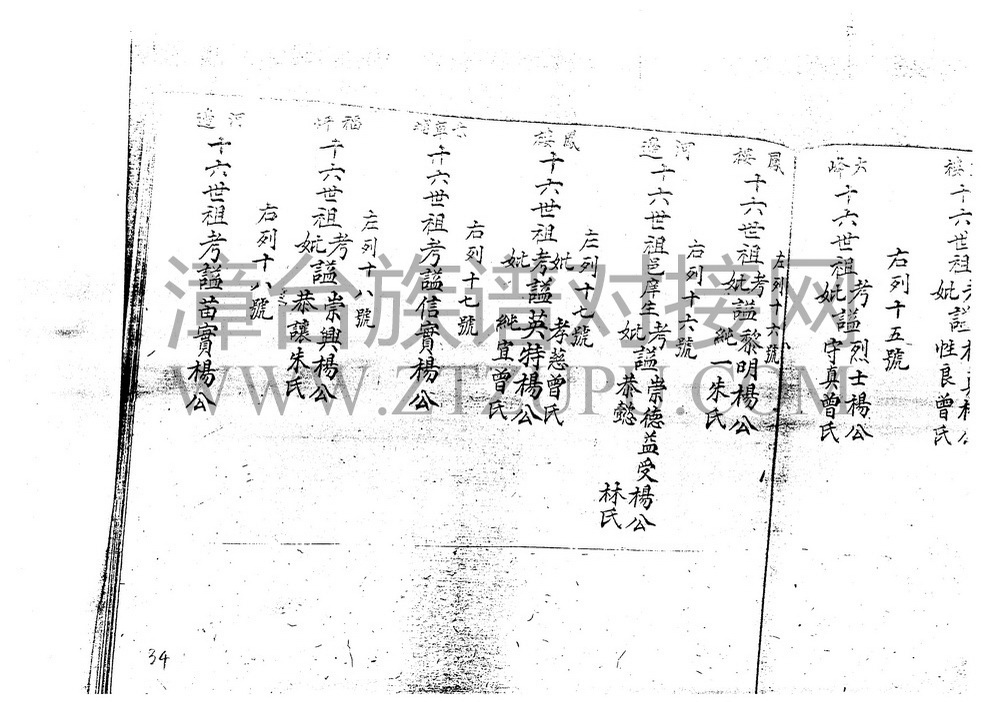 樓
十六世祖考
妣謚
性良曾氏
右列十五號
大峰
十六世祖考謚烈士楊公
妣守真曾氏
左列十六號
鳳樓
十六世祖考謚黎明楊公
妣純一朱氏
右列十六號
河邊
十六世祖邑庠生考謚崇德益受楊公
妣恭懿林氏
左列十七號
鳳樓
十六世祖考謚英特楊公
妣孝慈曾氏
妣純宜曾氏
右列十七號
十六世祖考謚信實楊公
左列十八號
福坪
十六世祖考謚崇興楊公
妣恭讓朱氏
右列十八號
河邊
十六世祖考謚苗實楊公
34
漳台族谱对接网
WWW.ZTZUPU.COM